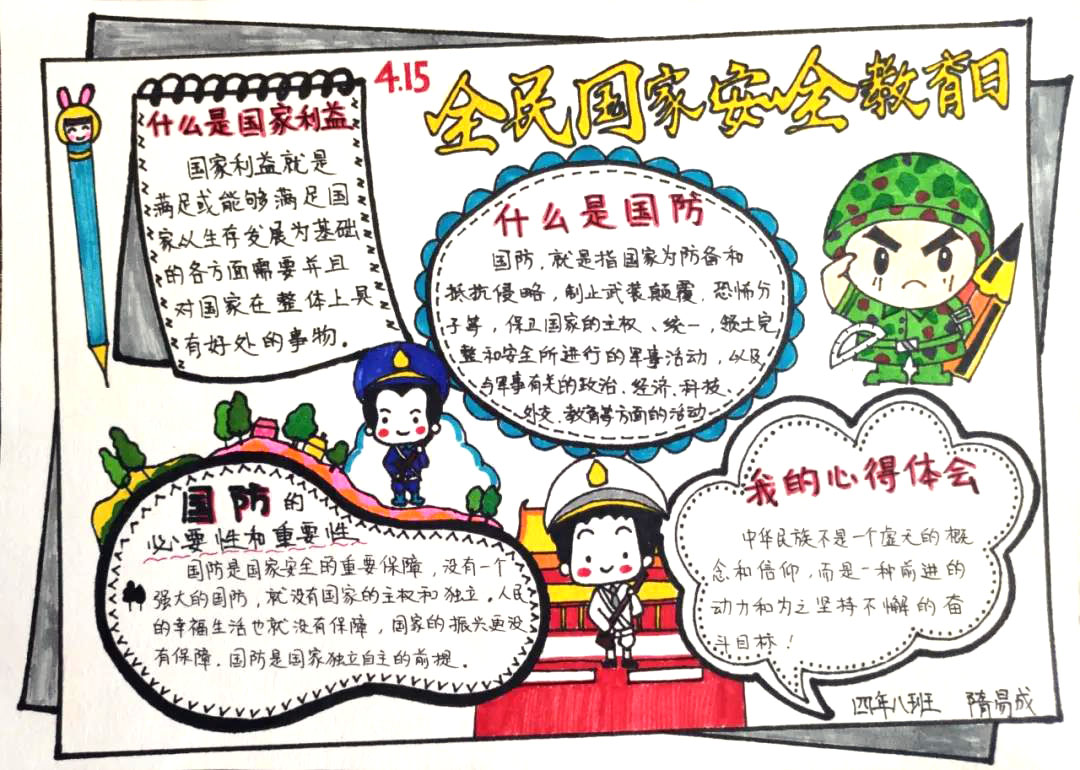 4.15
全民国家安全教育日
什么是国家利益
国家利益就是
满足或能够满足国
家以生存发展为基础
的各方面需要并且
对国家在整体上具
有好处的事物.
什么是国防
国防,就是指国家为防备和
抵抗侵略,制止武装颠覆、恐怖分
子等,保卫国家的主权、统一,领土完
整和安全所进行的军事活动,以及
与军事有关的政治、经济、科技、
外交、教育等方面的活动
国防的
必要性和重要性
国防是国家安全的重要保障,没有一个
强大的国防,就没有国家的主权和独立.人民
的幸福生活也就没有保障,国家的振兴更没
有保障.国防是国家独立自主的前提.
我的心得体会
中华民族不是一个虚无的概
念和信仰,而是一种前进的
动力和为之坚持不懈的奋
斗目标!
四年八班 隋易成